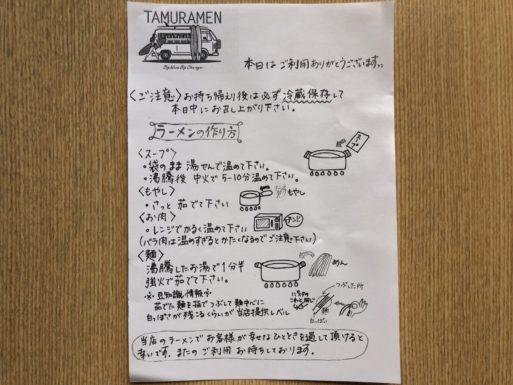 TAMURAMEN
本日は ご利用ありがとうございます。
〈ご注意〉お持ち帰り後は必ず冷蔵保存して
本日中にお召し上がり下さい。
ラーメンの作り方
〈スープ〉
・袋のまま湯せんで温めて下さい。
・沸騰後 中火で5~10分温めて下さい。
〈もやし〉
・さっと 茹でて下さい
もやし
〈お肉〉
・レンジでかるく温めて下さい
チンッ
(バラ肉は温めすぎるとかたくなるのでご注意下さい)
〈麺〉
沸騰したお湯で1分半
強火で茹でて下さい。
めん
豆知識情報
茹でた麺を指でつぶして麺中心に
白っぽさが残るくらいが当店提供レベル
つぶした所
白っぽい
当店のラーメンでお客様が幸せなひとときを過して頂けると
幸いです。またのご利用 お待ちしております。